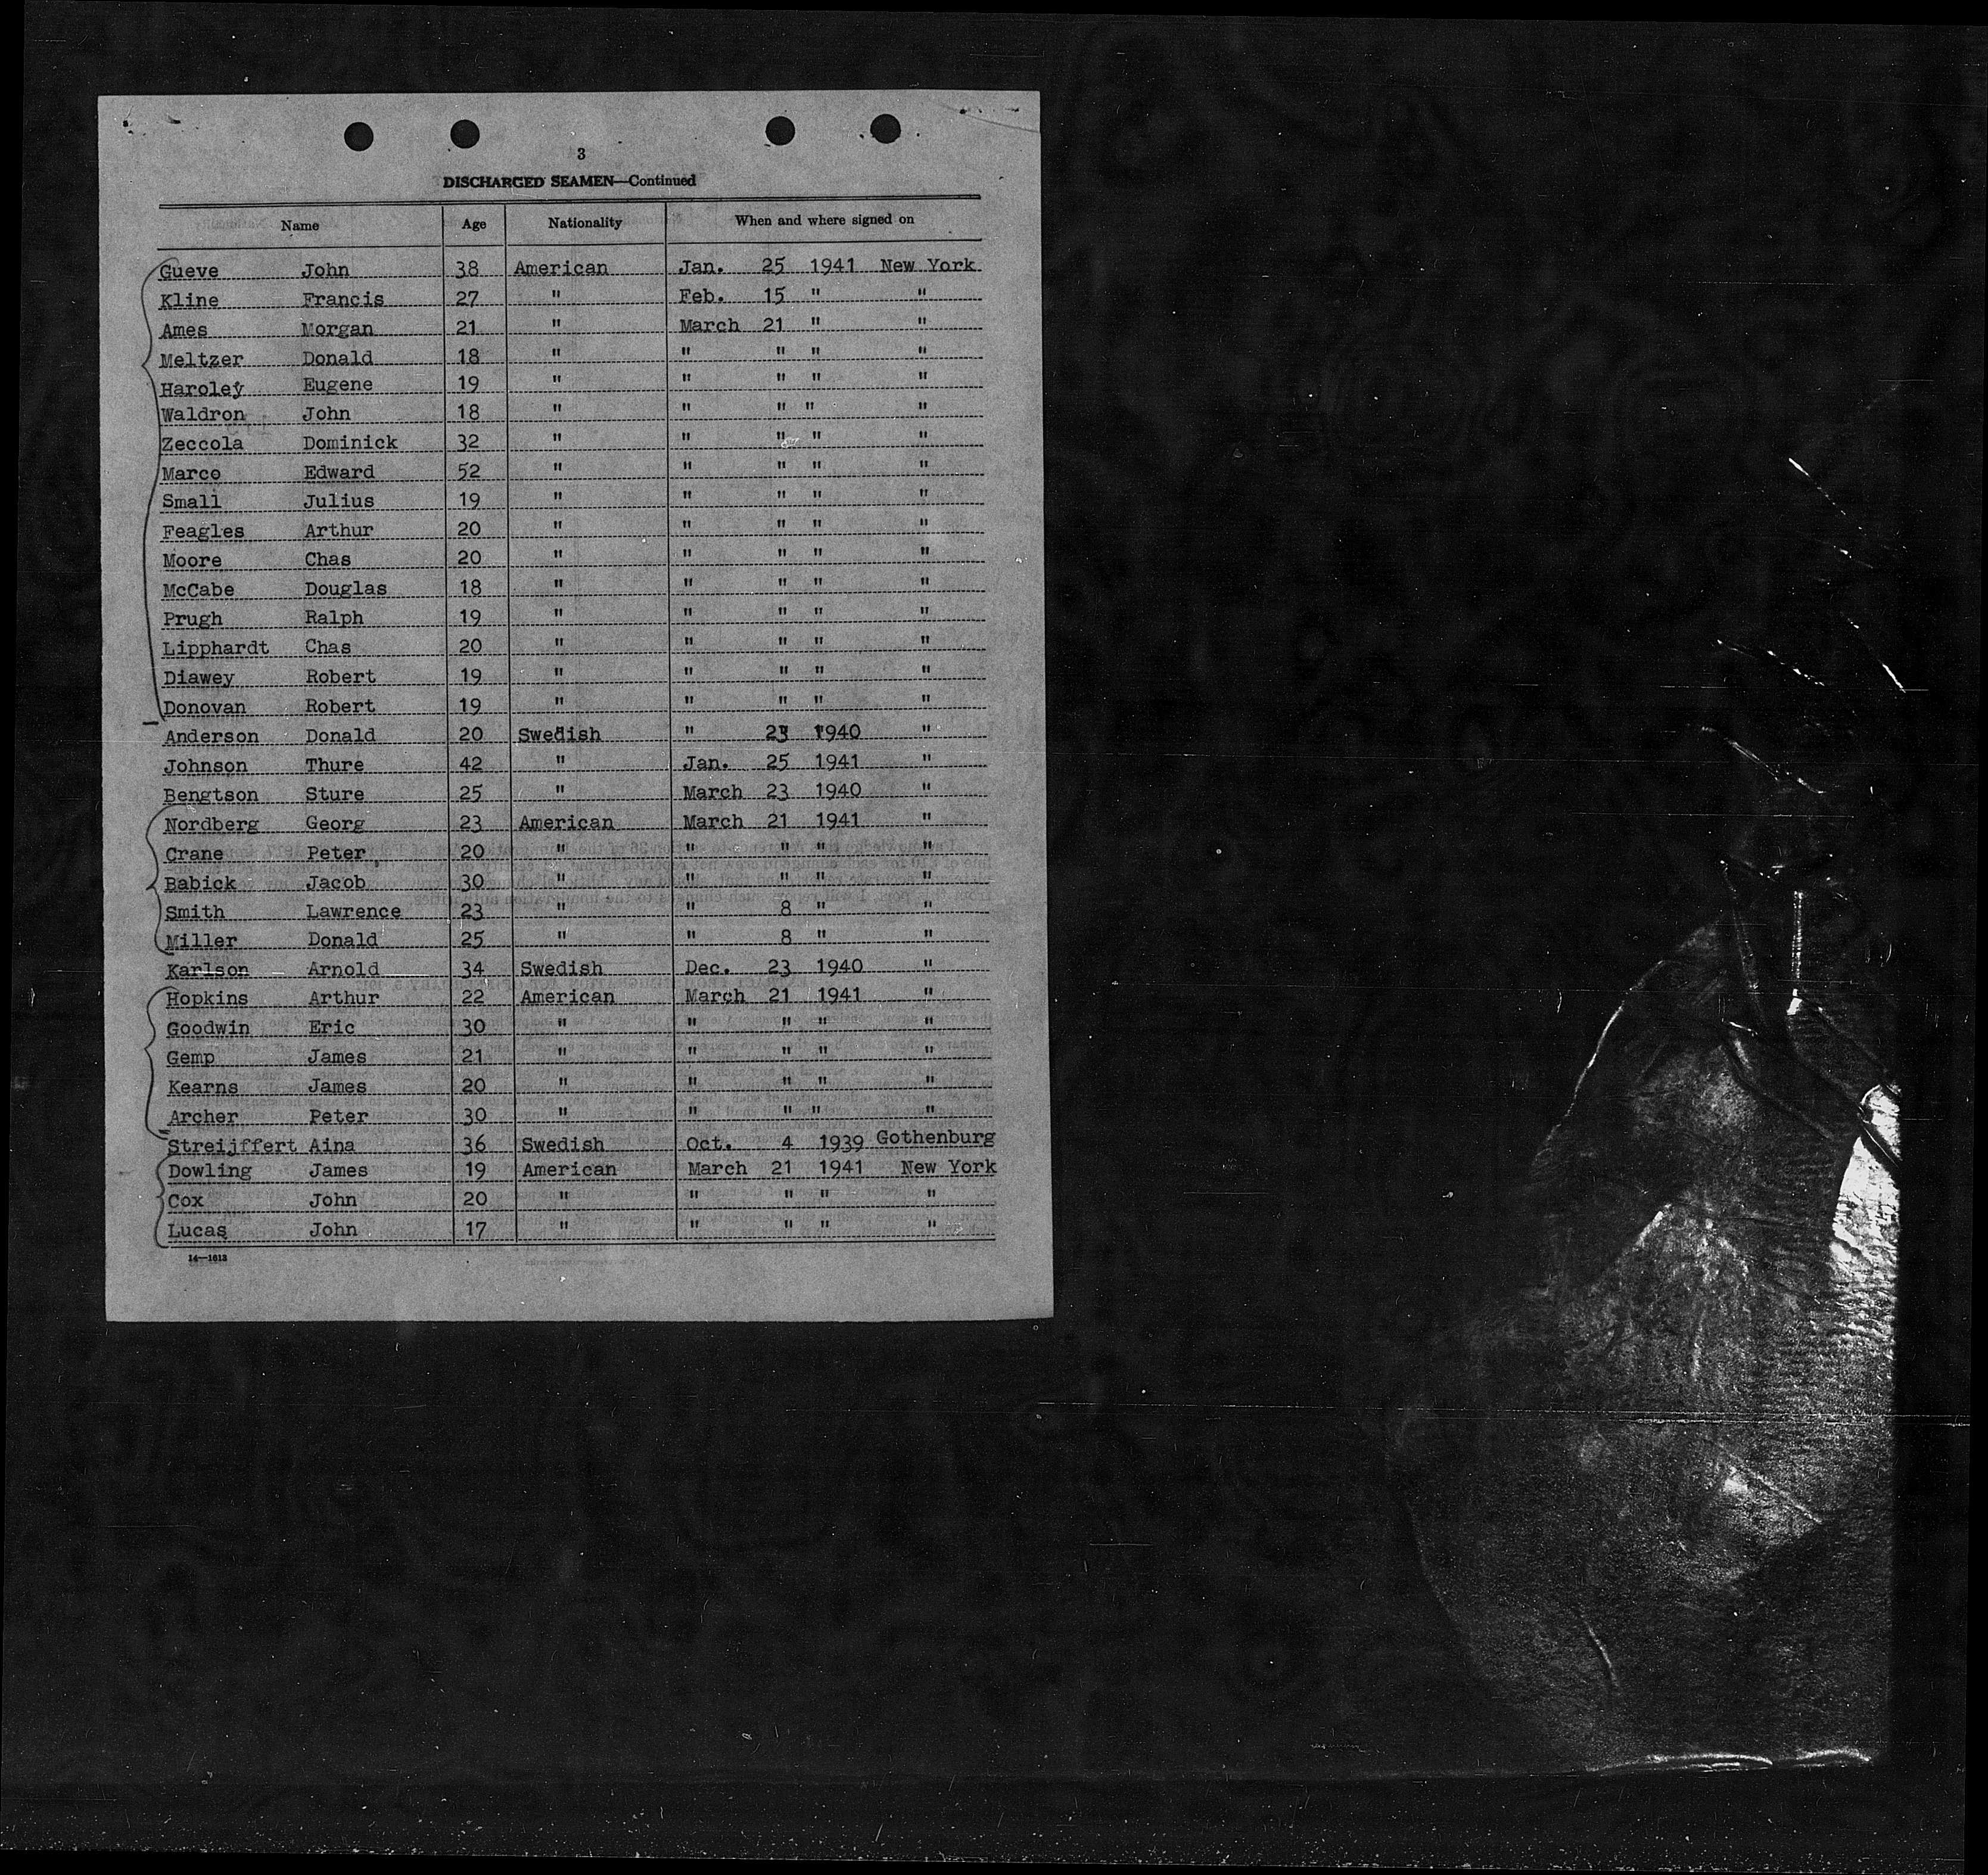 3
DISCHARGED SEAMEN—Continued
Name Age Nationality When and where signed on
Gueve John 38 American Jan. 25 1941 New York
Kline Francis 27 " Feb. 15 " "
Ames Morgan 21 " March 21 " "
Meltzer Donald 18 " " " " "
Haroley Eugene 19 " " " " "
Waldron John 18 " " " " "
Zeccola Dominick 32 " " " " "
Marco Edward 52 " " " " "
Small Julius 19 " " " " "
Feagles Arthur 20 " " " " "
Moore Chas 20 " " " " "
McCabe Douglas 18 " " " " "
Prugh Ralph 19 " " " " "
Lipphardt Chas 20 " " " " "
Diawey Robert 19 " " " " "
Donovan Robert 19 " " " " "
Anderson Donald 20 Swedish " 23 1940 "
Johnson Thure 42 " Jan. 25 1941 "
Bengtson Sture 25 " March 23 1940 "
Nordberg Georg 23 American March 21 1941 "
Crane Peter 20 " " " " "
Babick Jacob 30 " " " " "
Smith Lawrence 23 " " 8 " "
Miller Donald 25 " " 8 " "
Karlson Arnold 34 Swedish Dec. 23 1940 "
Hopkins Arthur 22 American March 21 1941 "
Goodwin Eric 30 " " " " "
Gemp James 21 " " " " "
Kearns James 20 " " " " "
Archer Peter 30 " " " " "
Streijffert Aina 36 Swedish Oct. 4 1939 Gothenburg
Dowling James 19 American March 21 1941 New York
Cox John 20 " " " " "
Lucas John 17 " " " " "
14—1613